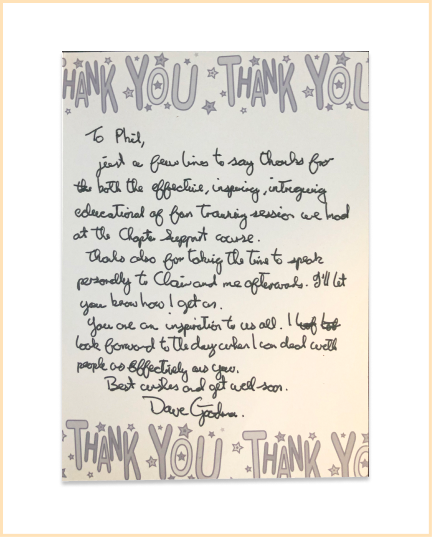 THANK YOU THANK YOU
To Phil,
just a few lines to say thanks for
the both the effective, inspiring, intriguing
educational of fun training session we had
at the Chapter Support course.
Thanks also for taking the time to speak
personally to Clair and me afterwards. I'll let
you know how I get on.
You are an inspiration to us all. I
look forward to the day when I can deal with
people as effectively as you.
Best wishes and get well soon.
Dave
THANK YOU THANK YO